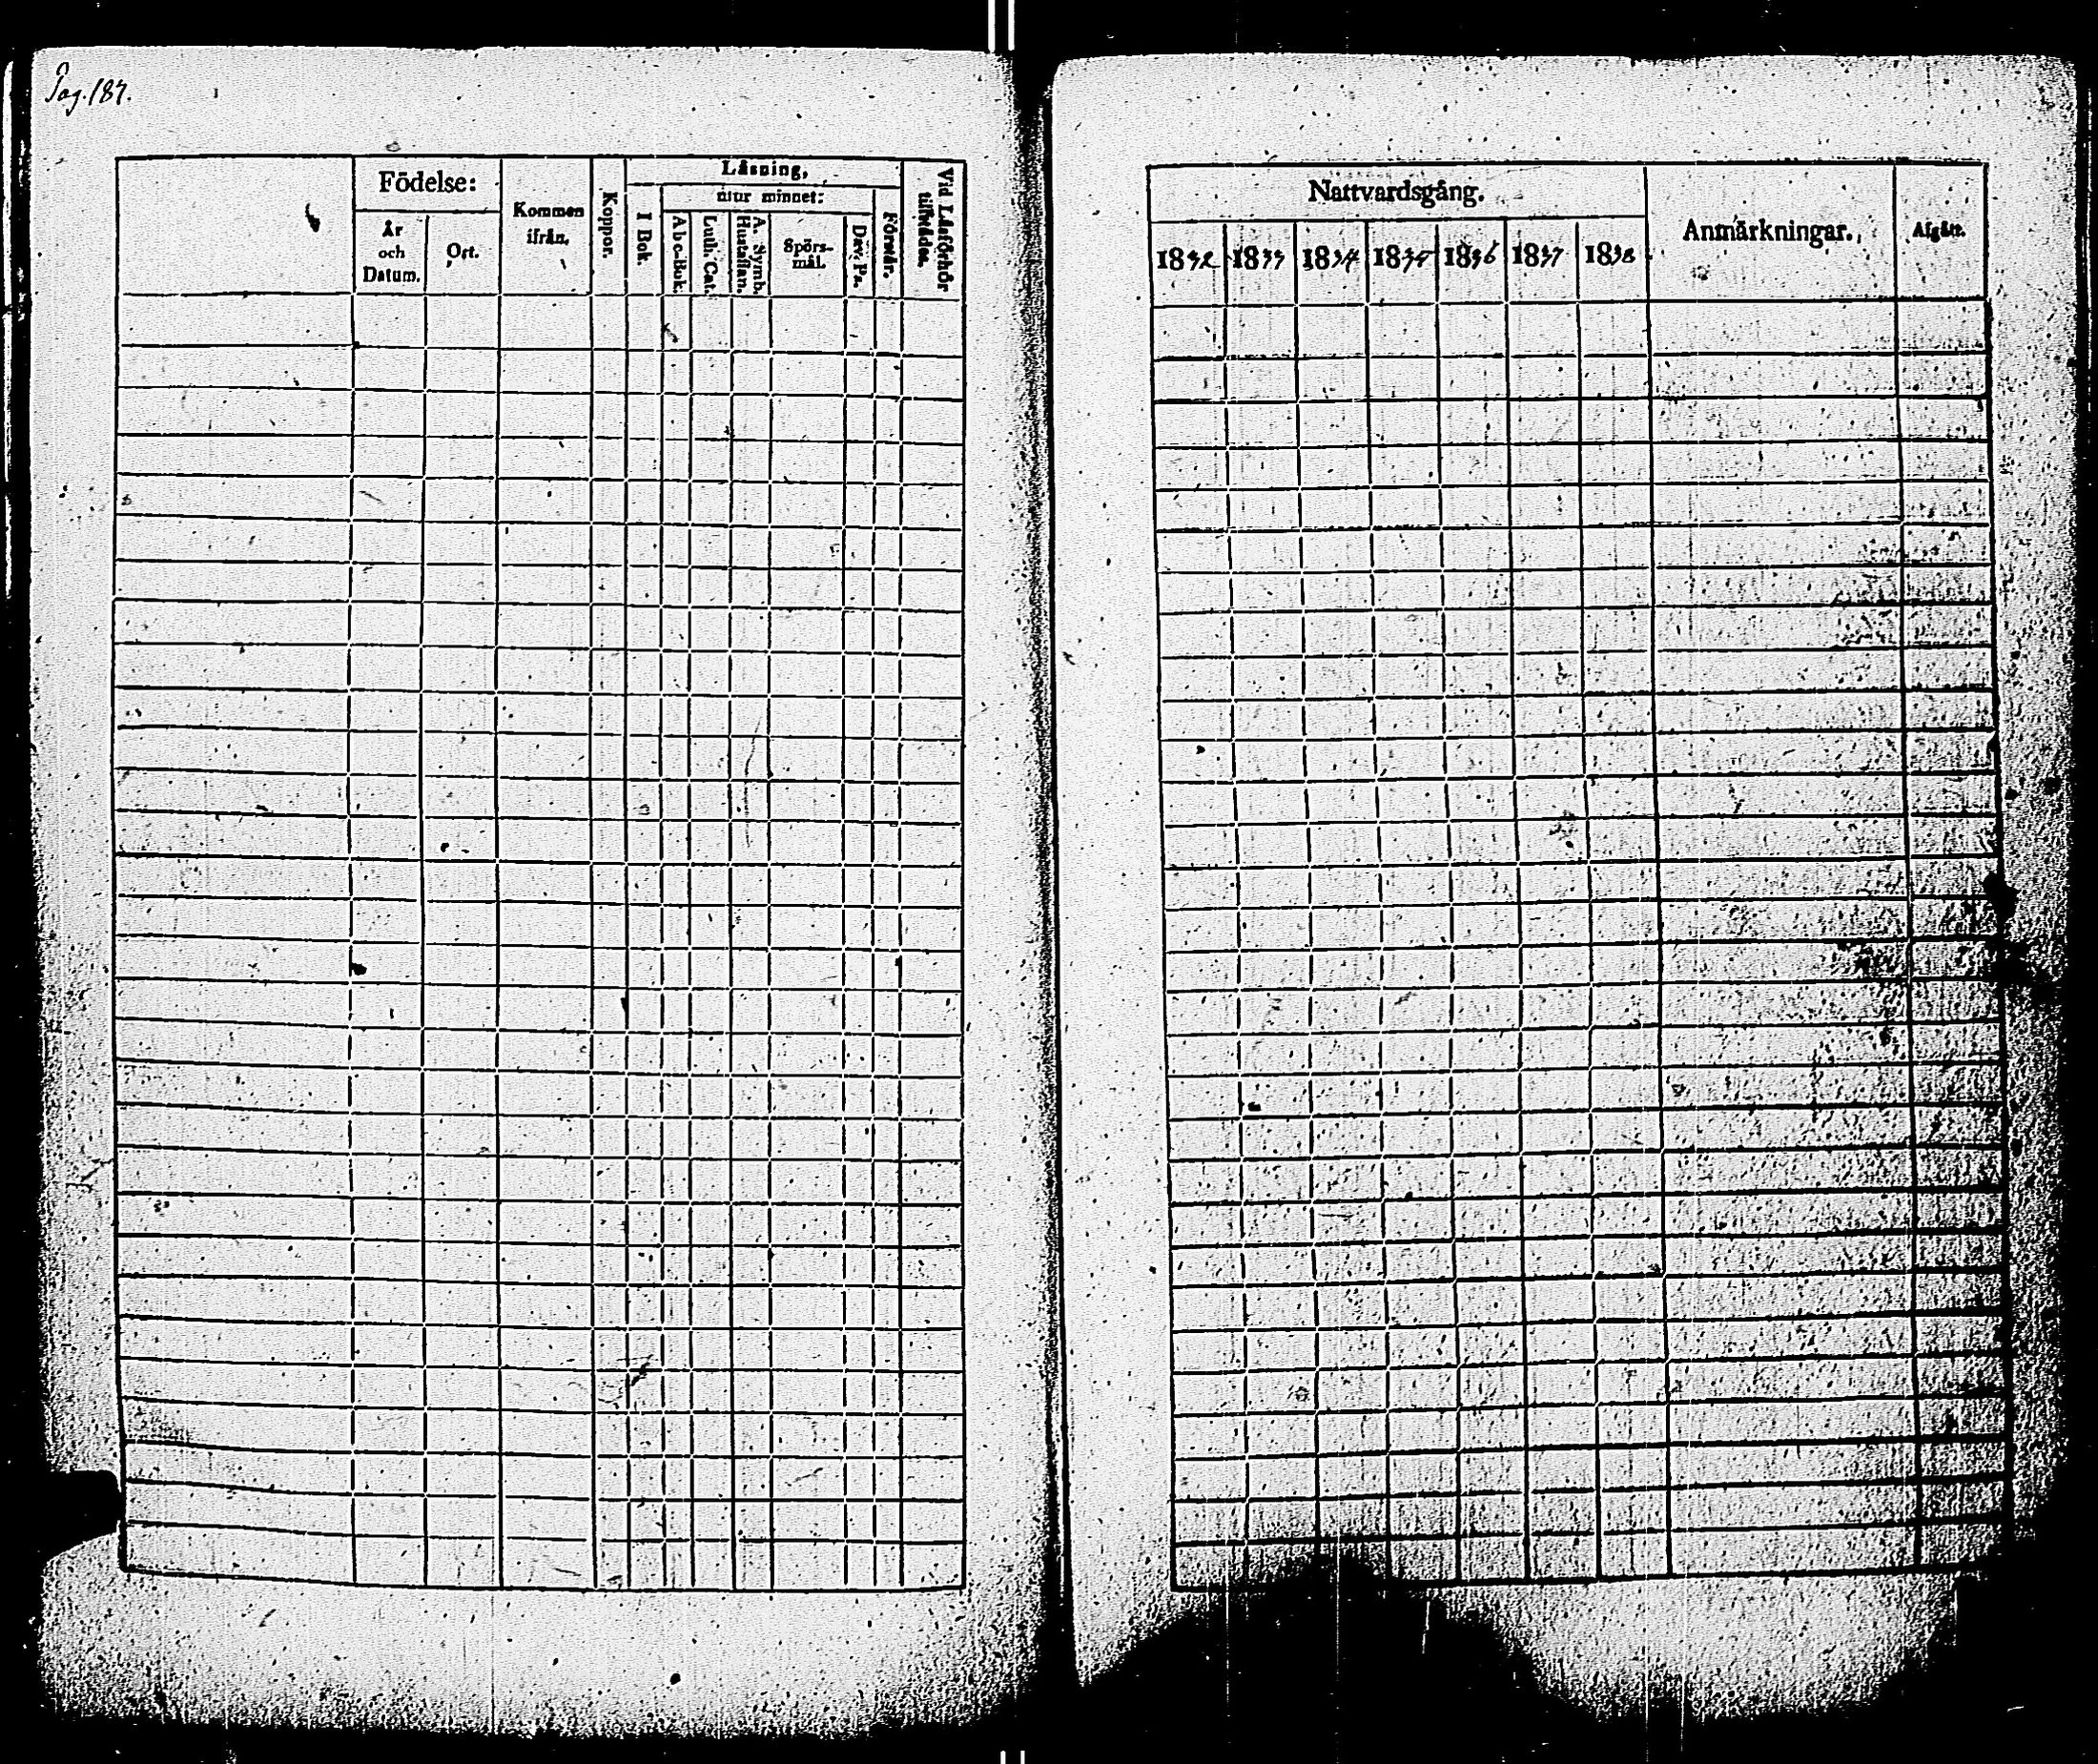 Pag. 187.
Födelse:
År
och
Datum.
Ort.
Kommen
ifrån.
Koppor.
Läsning,
I Bok.
utur minnet:
Abc-Bok.
Luth. Cat.
A. Symb.
Hustaflan.
Spörs-
mål.
Dav. Ps.
Förstår.
Vid Läsförhör
tillstädes.
Nattvardsgång.
1832 1833 1834 1835 1836 1837 1838
Anmärkningar.
Afgått.